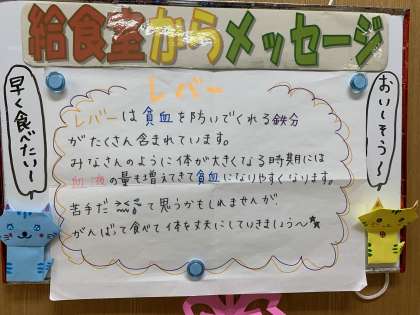 給食室からメッセージ
レバー
レバーは貧血を防いでくれる鉄分
がたくさん含まれています。
みなさんのように体が大きくなる時期には
血液の量も増えてきて貧血になりやすくなります。
苦手だなて思うかもしれませんが、
がんばって食べて体を丈夫にしていきましょう〜
おいしそう〜
早く食べたい〜